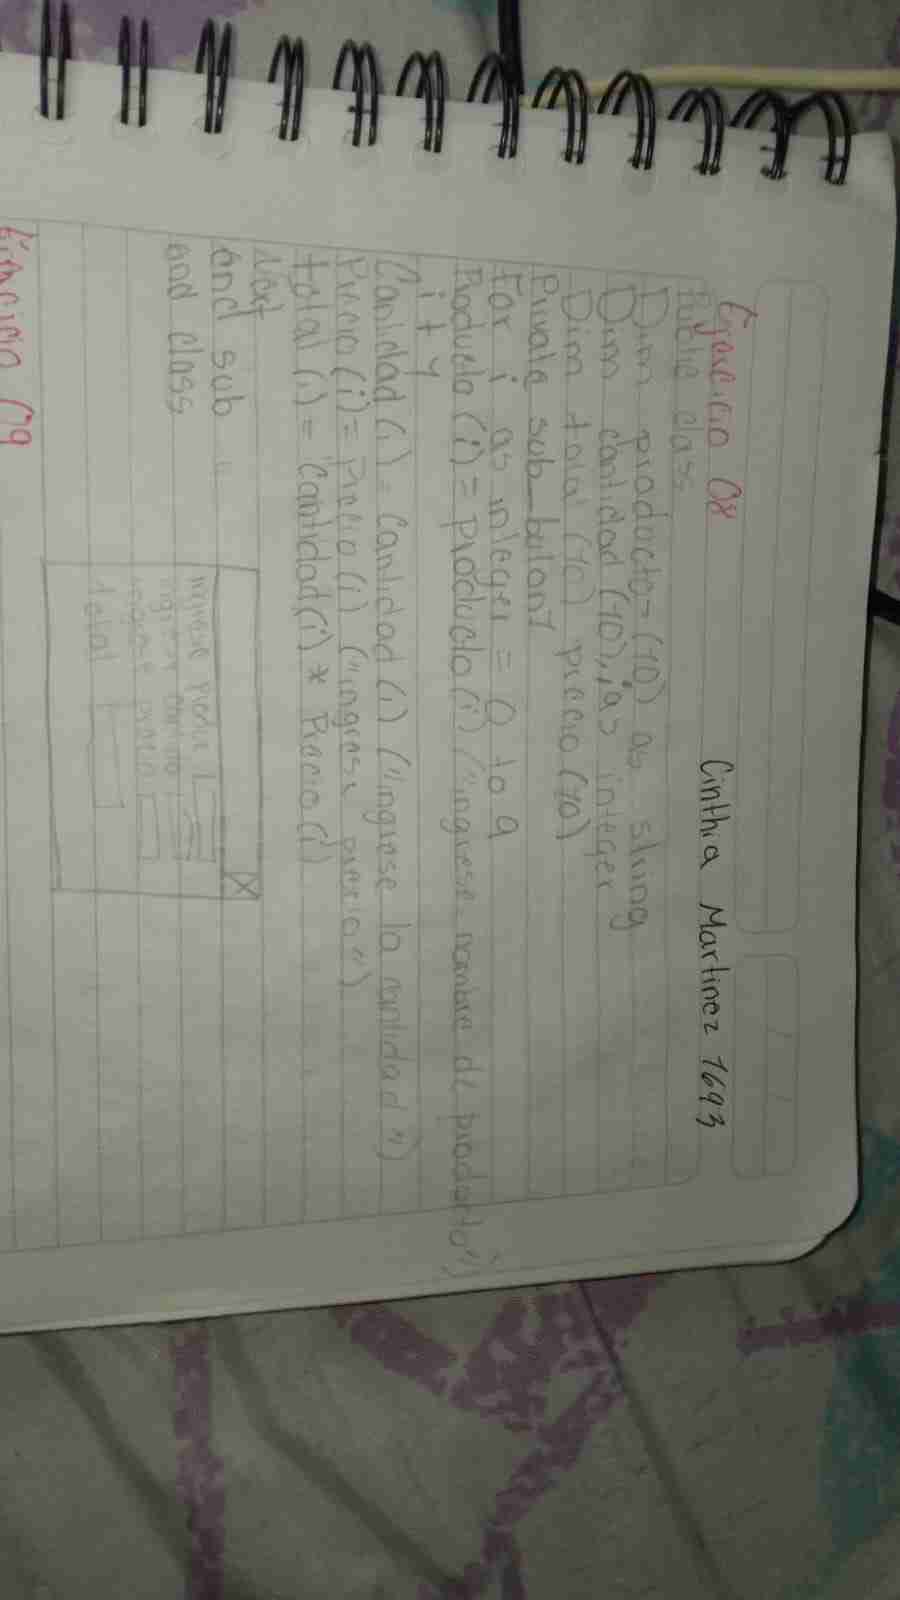 Cinthia Martinez 1693
Ejercicio 08
Public class
Dim producto=(10) as string
Dim cantidad (10), as integer
Dim total (10) precio (10)
Private sub_buton1
For i as integer = 0 to 9
Producto (i) = producto (i) ("ingrese nombre de producto")
i + y
Cantidad (i) = Cantidad (i) ("ingrese la cantidad")
Precio (i) = precio (i) ("ingrese precio")
total (i) = Cantidad (i) * Precio (i)
Next
end sub
end class
X
ingrese
ingrese
ingrese precio
total
Ejercicio 09